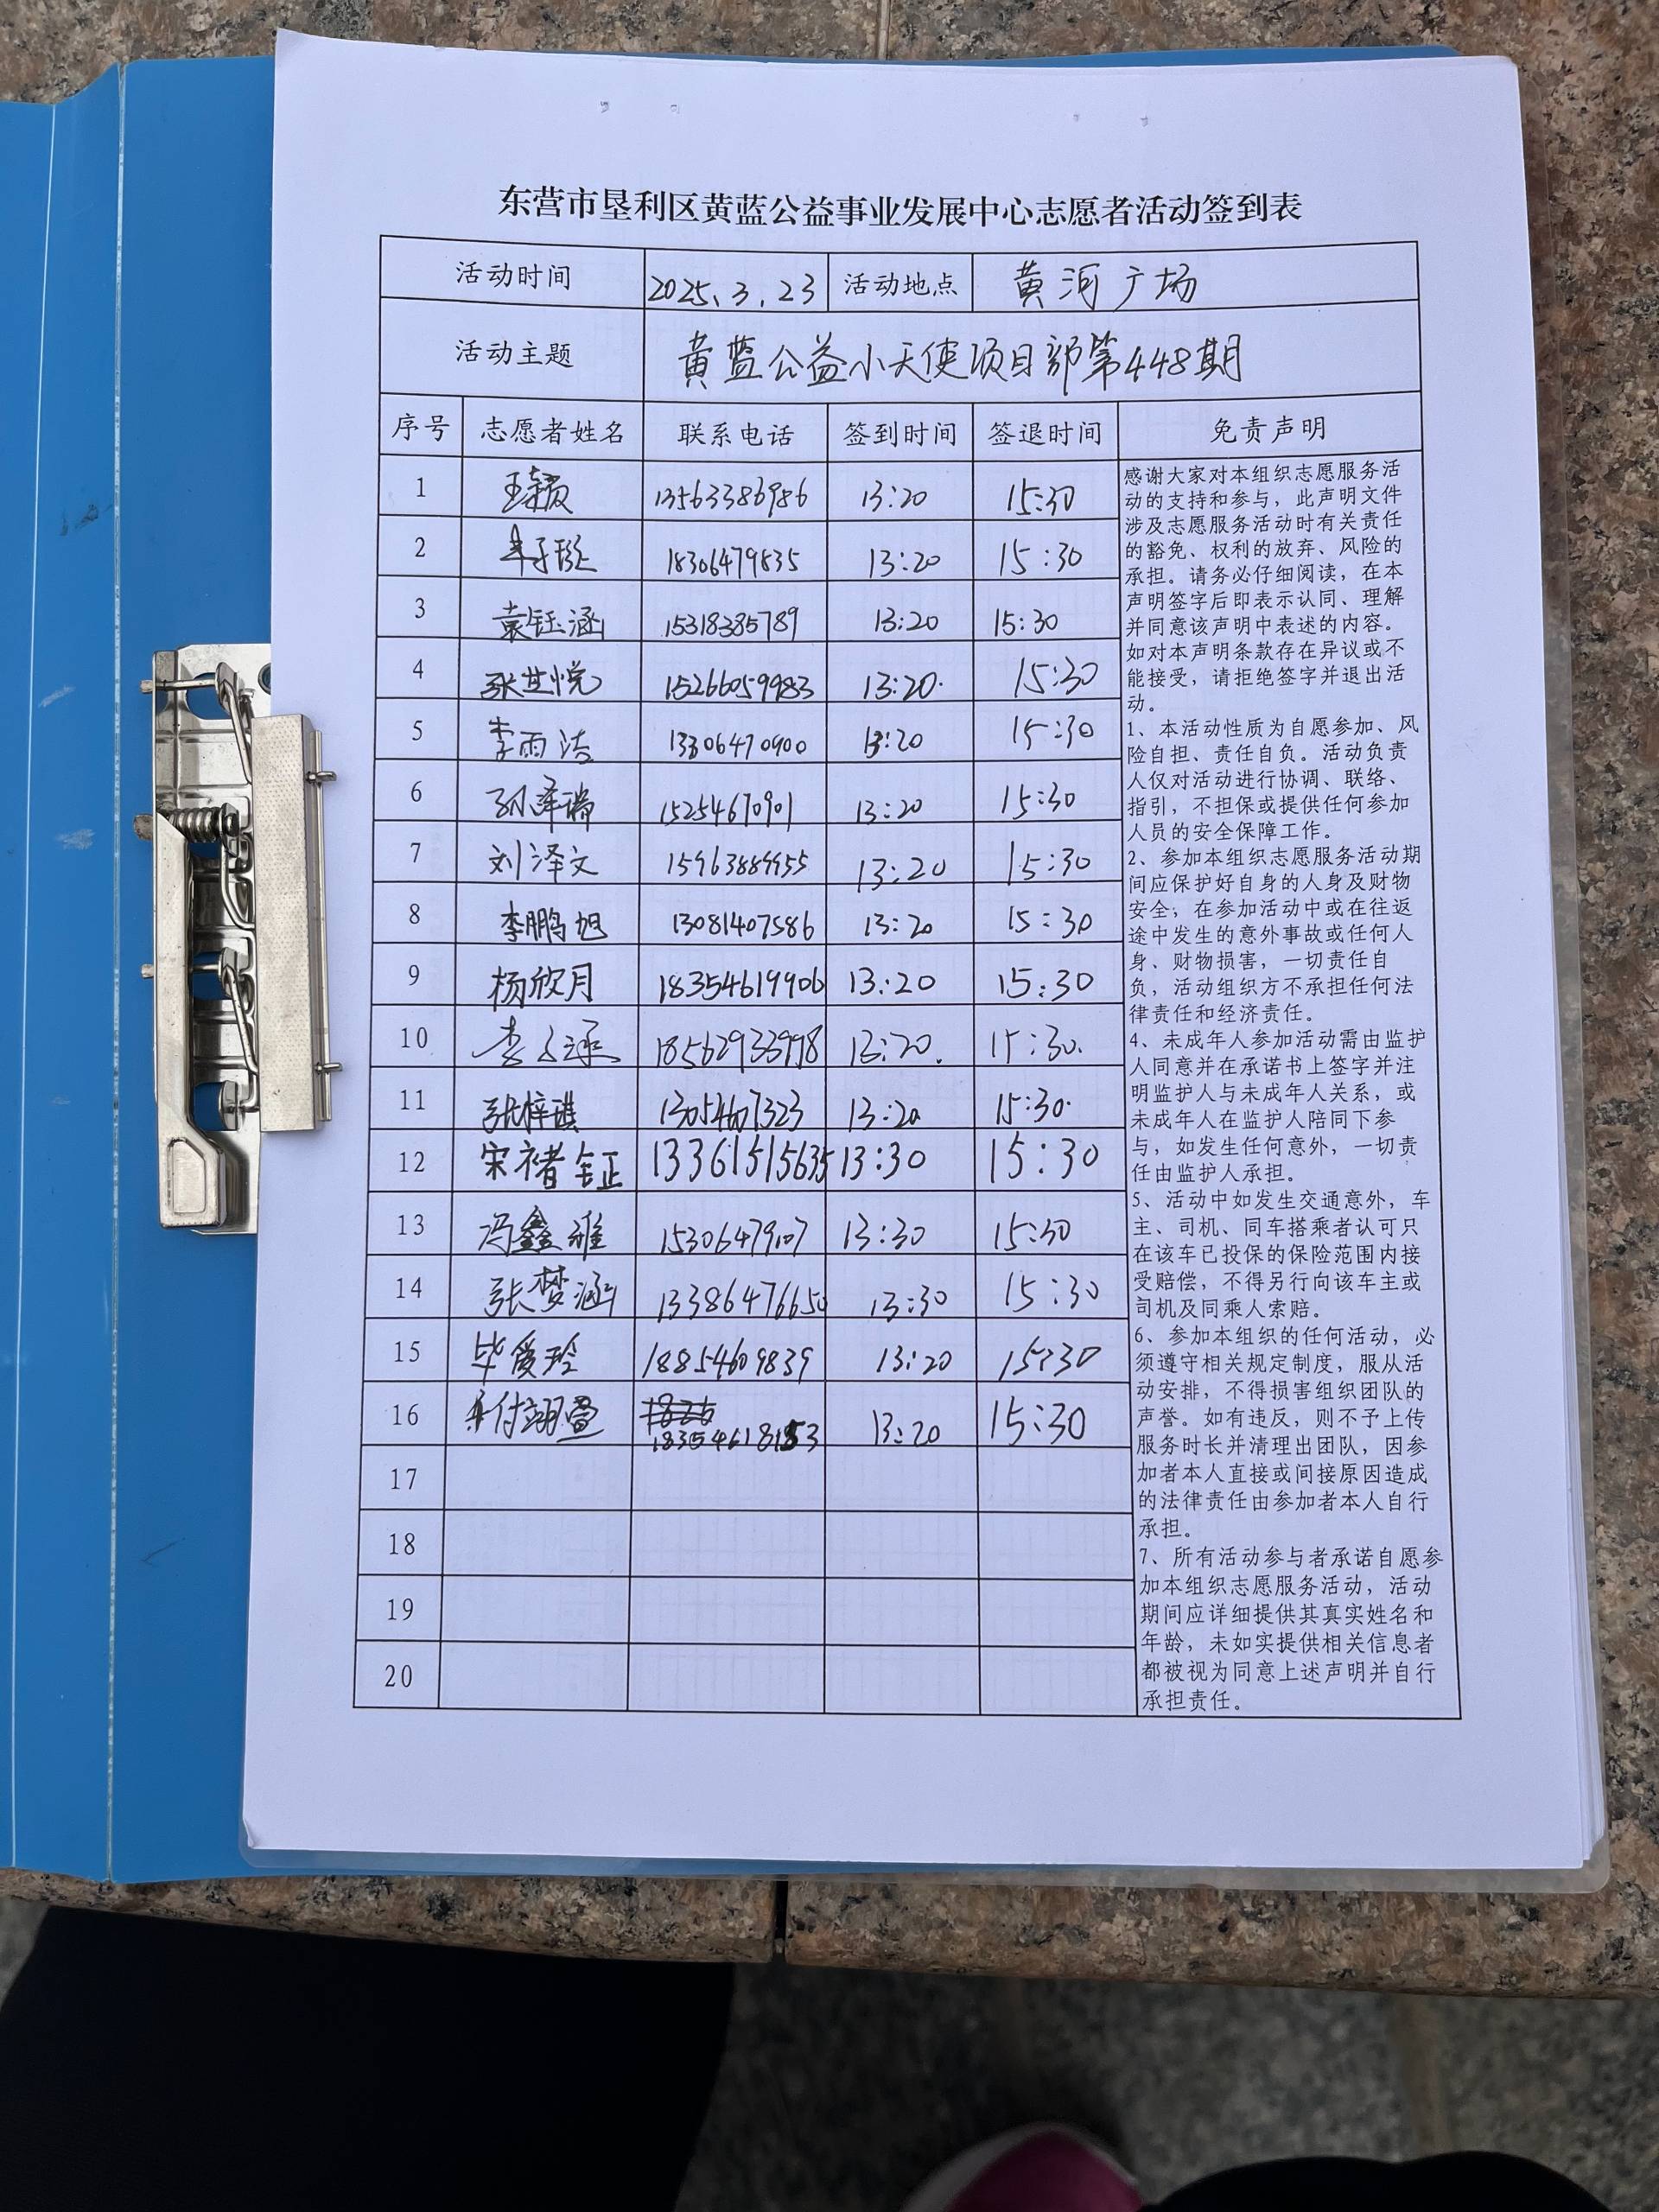 东营市垦利区黄蓝公益事业发展中心志愿者活动签到表
活动时间 2025.3.23 活动地点 黄河广场
活动主题 黄蓝公益小天使项目部第448期
序号 志愿者姓名 联系电话 签到时间 签退时间 免责声明
1 13563386986 13:20 15:30
2 18306479835 13:20 15:30
3 袁钰涵 15318385789 13:20 15:30
4 张芷悦 15266059983 13:20. 15:30
5 李雨洁 13306470900 13:20 15:30
6 孙泽瑞 15254670901 13:20 15:30
7 刘泽文 15963889955 13:20 15:30
8 李鹏旭 13081407586 13:20 15:30
9 杨欣月 18354619906 13:20 15:30
10 18562933998 13:20. 15:30.
11 张梓琪 13054607323 13:20 15:30.
12 宋禇钰 13361515635 13:30 15:30
13 冯鑫雅 15306479107 13:30 15:30
14 张梦涵 13386476650 13:30 15:30
15 毕爱玲 18854609839 13:20 15:30
16 付翊萱 18354618153 13:20 15:30
17
18
19
20
感谢大家对本组织志愿服务活
动的支持和参与，此声明文件
涉及志愿服务活动时有关责任
的豁免、权利的放弃、风险的
承担。请务必仔细阅读，在本
声明签字后即表示认同、理解
并同意该声明中表述的内容。
如对本声明条款存在异议或不
能接受，请拒绝签字并退出活
动。
1、本活动性质为自愿参加、风
险自担、责任自负。活动负责
人仅对活动进行协调、联络、
指引，不担保或提供任何参加
人员的安全保障工作。
2、参加本组织志愿服务活动期
间应保护好自身的人身及财物
安全；在参加活动中或在往返
途中发生的意外事故或任何人
身、财物损害，一切责任自
负，活动组织方不承担任何法
律责任和经济责任。
4、未成年人参加活动需由监护
人同意并在承诺书上签字并注
明监护人与未成年人关系，或
未成年人在监护人陪同下参
与，如发生任何意外，一切责
任由监护人承担。
5、活动中如发生交通意外，车
主、司机、同车搭乘者认可只
在该车已投保的保险范围内接
受赔偿，不得另行向该车主或
司机及同乘人索赔。
6、参加本组织的任何活动，必
须遵守相关规定制度，服从活
动安排，不得损害组织团队的
声誉。如有违反，则不予上传
服务时长并清理出团队，因参
加者本人直接或间接原因造成
的法律责任由参加者本人自行
承担。
7、所有活动参与者承诺自愿参
加本组织志愿服务活动，活动
期间应详细提供其真实姓名和
年龄，未如实提供相关信息者
都被视为同意上述声明并自行
承担责任。